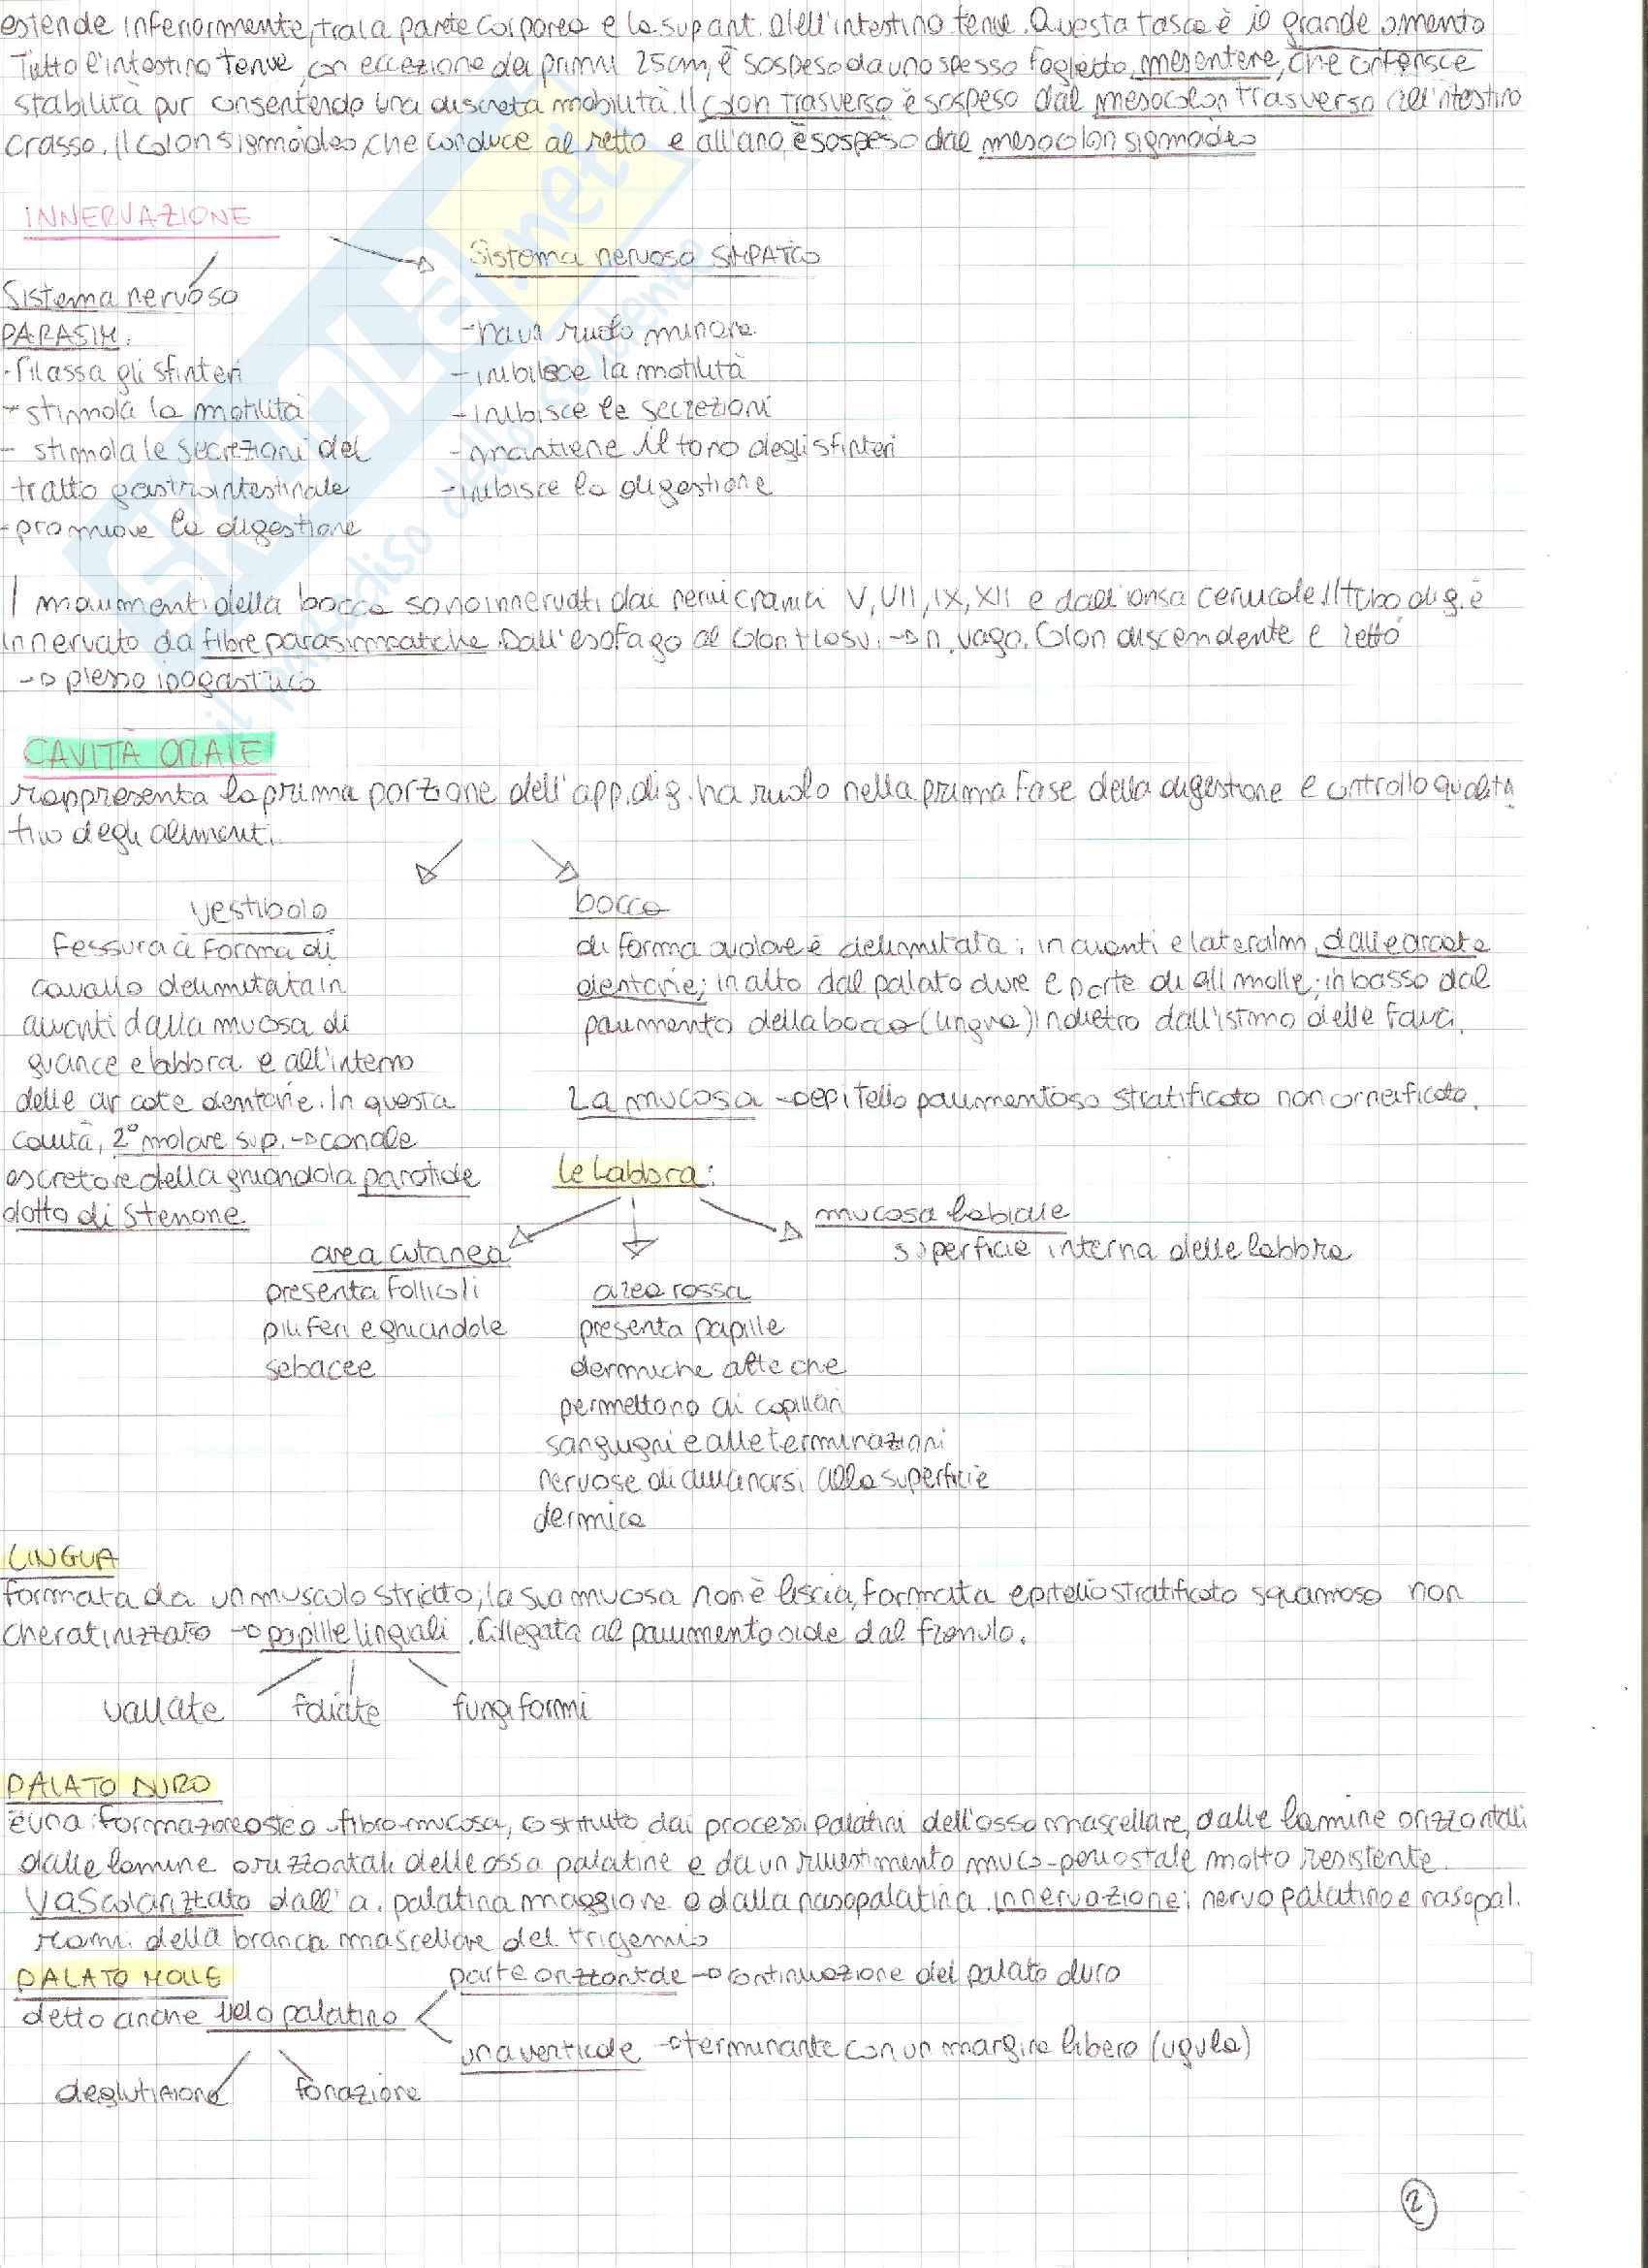 estende inferiormente, tra la parete corporea e la sup. ant. dell'intestino tenue. Questa tasca è il grande omento
Tutto l'intestino tenue, con eccezione dei primi 25cm, è sospeso da uno spesso foglietto, mesentere, che conferisce
stabilità pur consentendo una discreta mobilità. Il colon trasverso è sospeso dal mesocolon trasverso all'intestino
crasso. Il colon sigmoideo, che conduce al retto e all'ano, è sospeso dal mesocolon sigmoideo
INNERVAZIONE
Sistema nervoso SIMPATICO
Sistema nervoso
PARASIM.
- ha un ruolo minore
- rilassa gli sfinteri
- inibisce la motilità
- stimola la motilità
- inibisce le secrezioni
- stimola le secrezioni del
- mantiene il tono degli sfinteri
tratto gastrointestinale
- inibisce la digestione
- promuove la digestione
I movimenti della bocca sono innervati dai nervi cranici V, VII, IX, XII e dall'ansa cervicale. Il tubo dig. è
innervato da fibre parasimpatiche. Dall'esofago al colon trasv. → n. vago. Colon discendente e retto
→ plesso ipogastrico
CAVITÀ ORALE
rappresenta la prima porzione dell'app. dig. ha ruolo nella prima fase della digestione e controllo qualita
tivo degli alimenti.
vestibolo
bocca
Fessura a forma di
di forma ovolare è delimitata: in avanti e lateralm. dalle arcate
cavallo delimitata in
dentarie; in alto dal palato duro e parte di qll molle; in basso dal
avanti dalla mucosa di
pavimento della bocca (lingua) indietro dall'istmo delle fauci.
guance e labbra e all'interno
delle arcate dentarie. In questa
La mucosa → epitelio pavimentoso stratificato non corneificato.
cavità, 2° molare sup. → canale
escretore della ghiandola parotide
le labbra:
dotto di Stenone
mucosa labiale
area cutanea
superficie interna delle labbra
presenta follicoli
area rossa
piliferi e ghiandole
presenta papille
sebacee
dermiche alte che
permettono ai capillari
sanguigni e alle terminazioni
nervose di avvicinarsi alla superficie
dermica
LINGUA
formata da un muscolo striato; la sua mucosa non è liscia, formata epitelio stratificato squamoso non
cheratinizzato → papille linguali. Collegata al pavimento orale dal frenulo.
vallate foliate fungiformi
PALATO DURO
è una formazione osteo-fibro-mucosa, costituito dai processi palatini dell'osso mascellare, dalle lamine orizzontali
dalle lamine orizzontali delle ossa palatine e da un rivestimento muco-periostale molto resistente.
Vascolarizzato dall'a. palatina maggiore e dalla nasopalatina. innervazione: nervo palatino e nasopal.
rami della branca mascellare del trigemio
PALATO MOLLE
parte orizzontale → continuazione del palato duro
detto anche velo palatino
una verticale → terminante con un margine libero (ugula)
deglutizione fonazione
2
SKUOLA.net
il paradiso dello studente